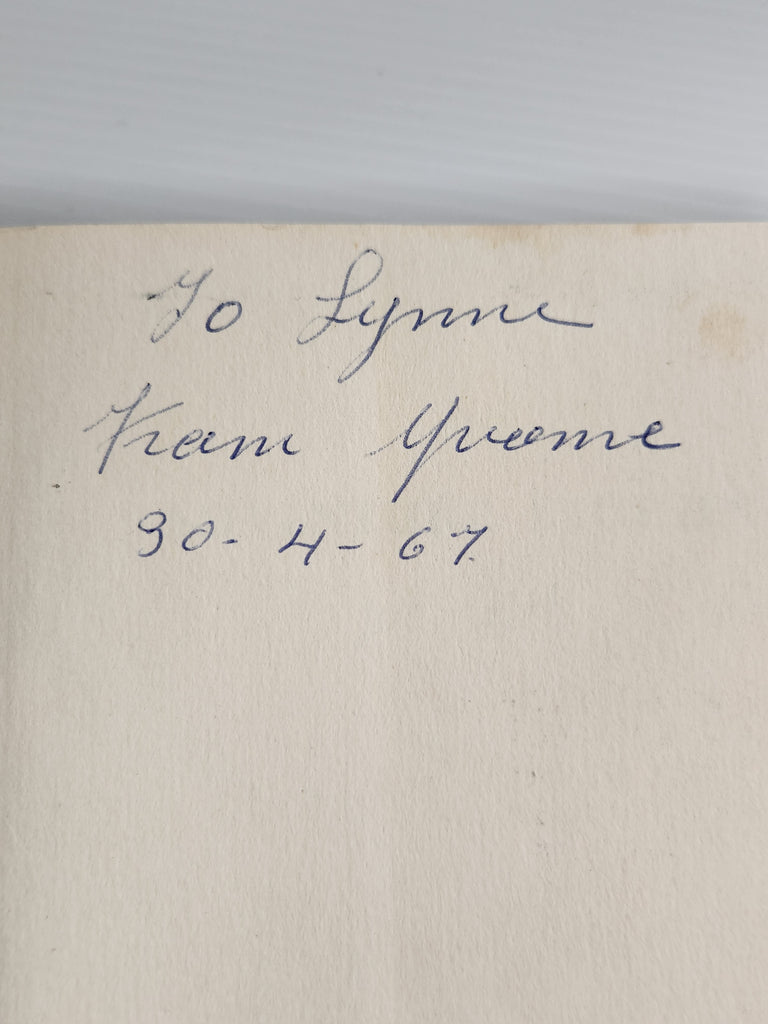 To Lynne
From Yvonne
30-4-67.